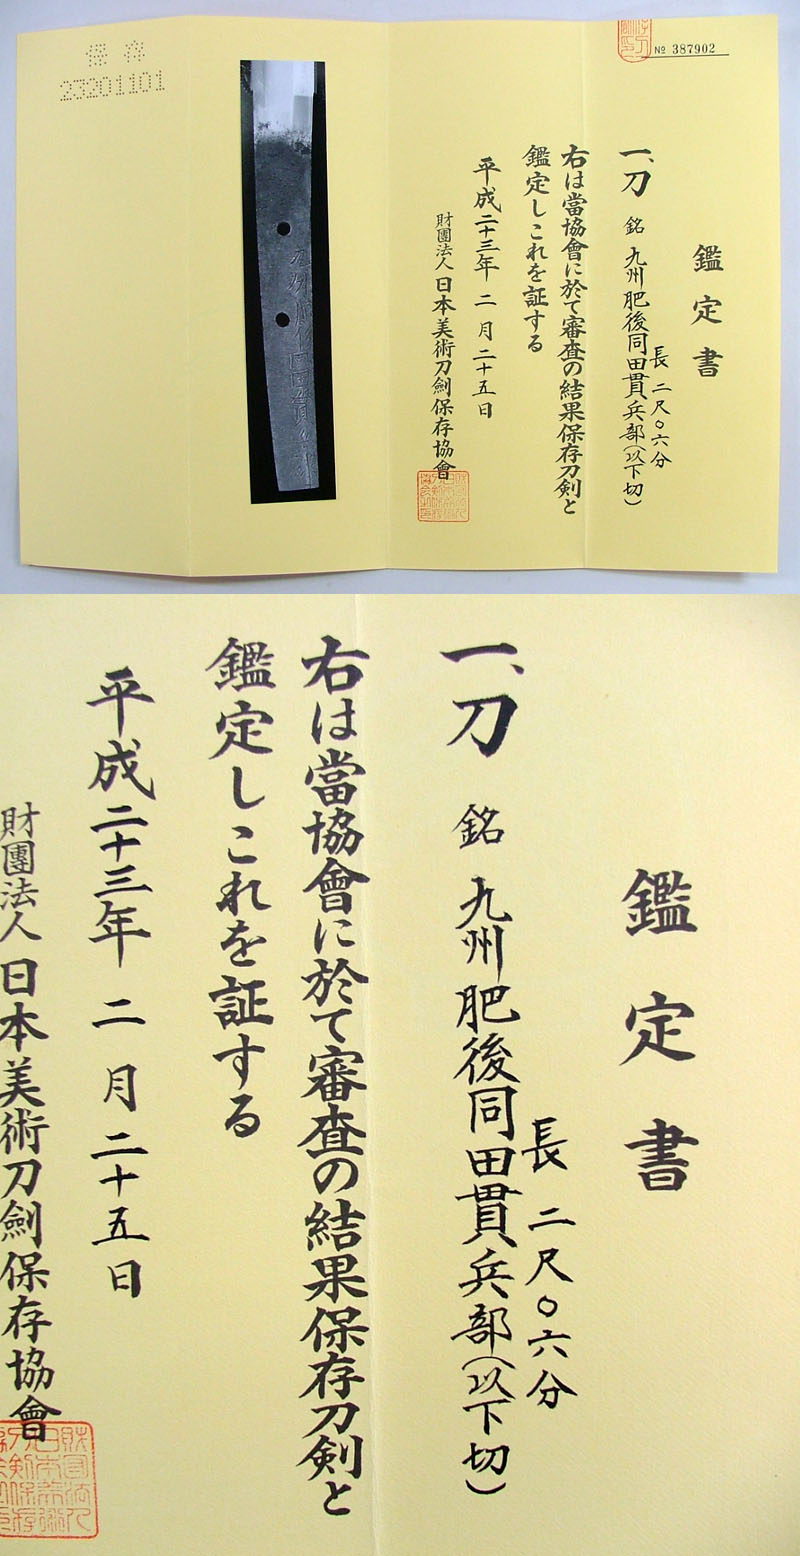 保存
23201101
№ 387902
鑑定書
長 二尺〇六分
一、刀 銘 九州肥後同田貫兵部(以下切)
右は當協會に於て審査の結果保存刀剣と
鑑定しこれを証する
平成二十三年 二 月 二十五日
財團法人 日本美術刀劍保存協會
鑑定書
長 二尺〇六分
一、刀 銘 九州肥後同田貫兵部(以下切)
右は當協會に於て審査の結果保存刀剣と
鑑定しこれを証する
平成二十三年 二 月 二十五日
財團法人 日本美術刀劍保存協會